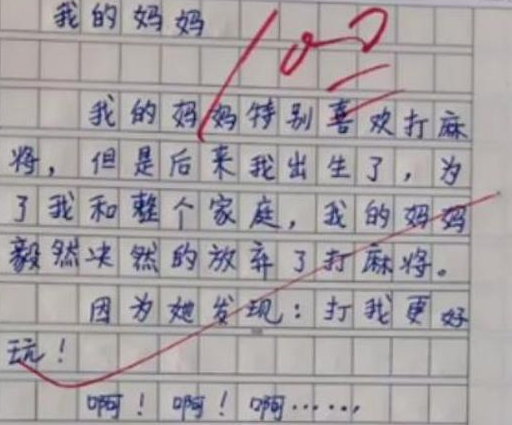 我的妈妈
100
我的妈妈特别喜欢打麻
将，但是后来我出生了，为
了我和整个家庭，我的妈妈
毅然决然的放弃了打麻将。
因为她发现：打我更好
玩！
啊！啊！啊……